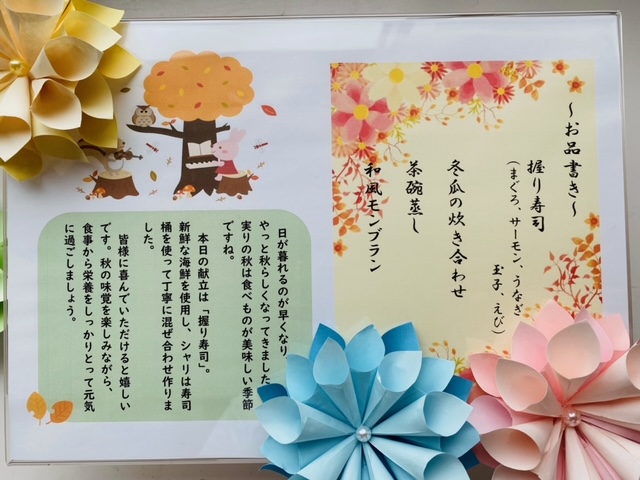 ～お品書き～
握り寿司
（まぐろ、サーモン、うなぎ
玉子、えび）
冬瓜の炊き合わせ
茶碗蒸し
和風モンブラン
日が暮れるのが早くなり、
やっと秋らしくなってきました
実りの秋は食べものが美味しい季節
ですね。
本日の献立は「握り寿司」。
新鮮な海鮮を使用し、シャリは寿司
桶を使って丁寧に混ぜ合わせ作りま
した。
皆様に喜んでいただけると嬉しい
です。秋の味覚を楽しみながら、
食事から栄養をしっかりとって元気
に過ごしましょう。